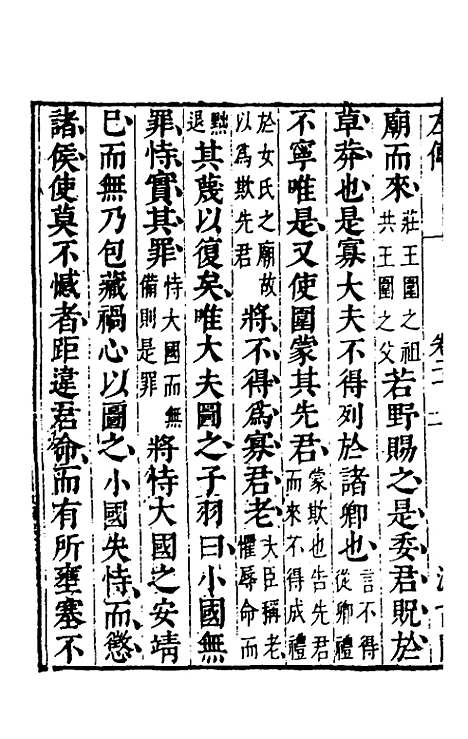 廟而來莊王圍之祖共王圍之父若野賜之是委君貺於
草莽也是寡大夫不得列於諸卿也言不得從卿禮
不寧唯是又使圍蒙其先君蒙欺也告先君而來不得成禮
於女氏之廟故以爲欺先君將不得爲寡君老大臣稱老懼辱命而
黜退其蔑以復矣唯大夫圖之子羽曰小國無
罪恃實其罪恃大國而無備則是罪將恃大國之安靖
已而無乃包藏禍心以圖之小國失恃而懲
諸侯使莫不憾者距違君命而有所壅塞不